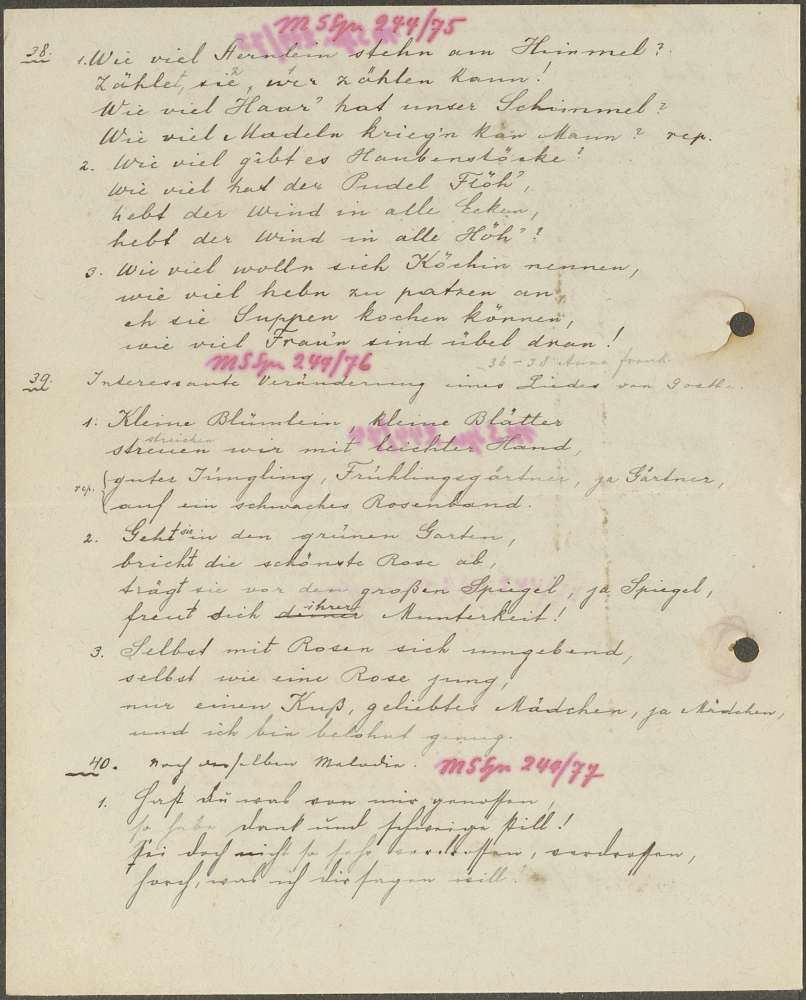 MSSpr 244/75
38. 1. Wie viel Sternlein stehn am Himmel?
Zählet sie, wer zählen kann!
Wie viel Haar' hat unser Schimmel?
Wie viel Madeln krieg'n kan Mann? rep.
2. Wie viel gibt es Haubenstöcke?
Wie viel hat der Pudel Flöh',
hebt der Wind in alle Ecken,
hebt der Wind in alle Höh'?
3. Wie viel wolln sich Köchin nennen,
wie viel hebn zu patzen an,
eh sie Suppen kochen können,
wie viel Frau'n sind übel dran!
36-38 Anna Frank
MSSpr 249/76
39. Interessante Veränderung eines Liedes von Goethe.
1. Kleine Blümlein, kleine Blätter
streichen
streuen wir mit leichter Hand,
rep. guter Jüngling, Frühlingsgärtner, ja Gärtner,
auf ein schwaches Rosenband.
2. Geht sie in den grünen Garten,
bricht die schönste Rose ab,
trägt sie vor den großen Spiegel, ja Spiegel,
ihrer
freut sich deiner Munterkeit!
3. Selbst mit Rosen sich umgebend,
selbst wie eine Rose jung,
nur einen Kuß, geliebtes Mädchen, ja Mädchen,
und ich bin belohnt genug.
40. Nach derselben Melodie. MSSpr 249/77
1. Hast du was von mir genossen,
so habe Dank und schweige still!
Sei doch nicht so sehr verdrossen, verdrossen,
horch, was ich dir sagen will!